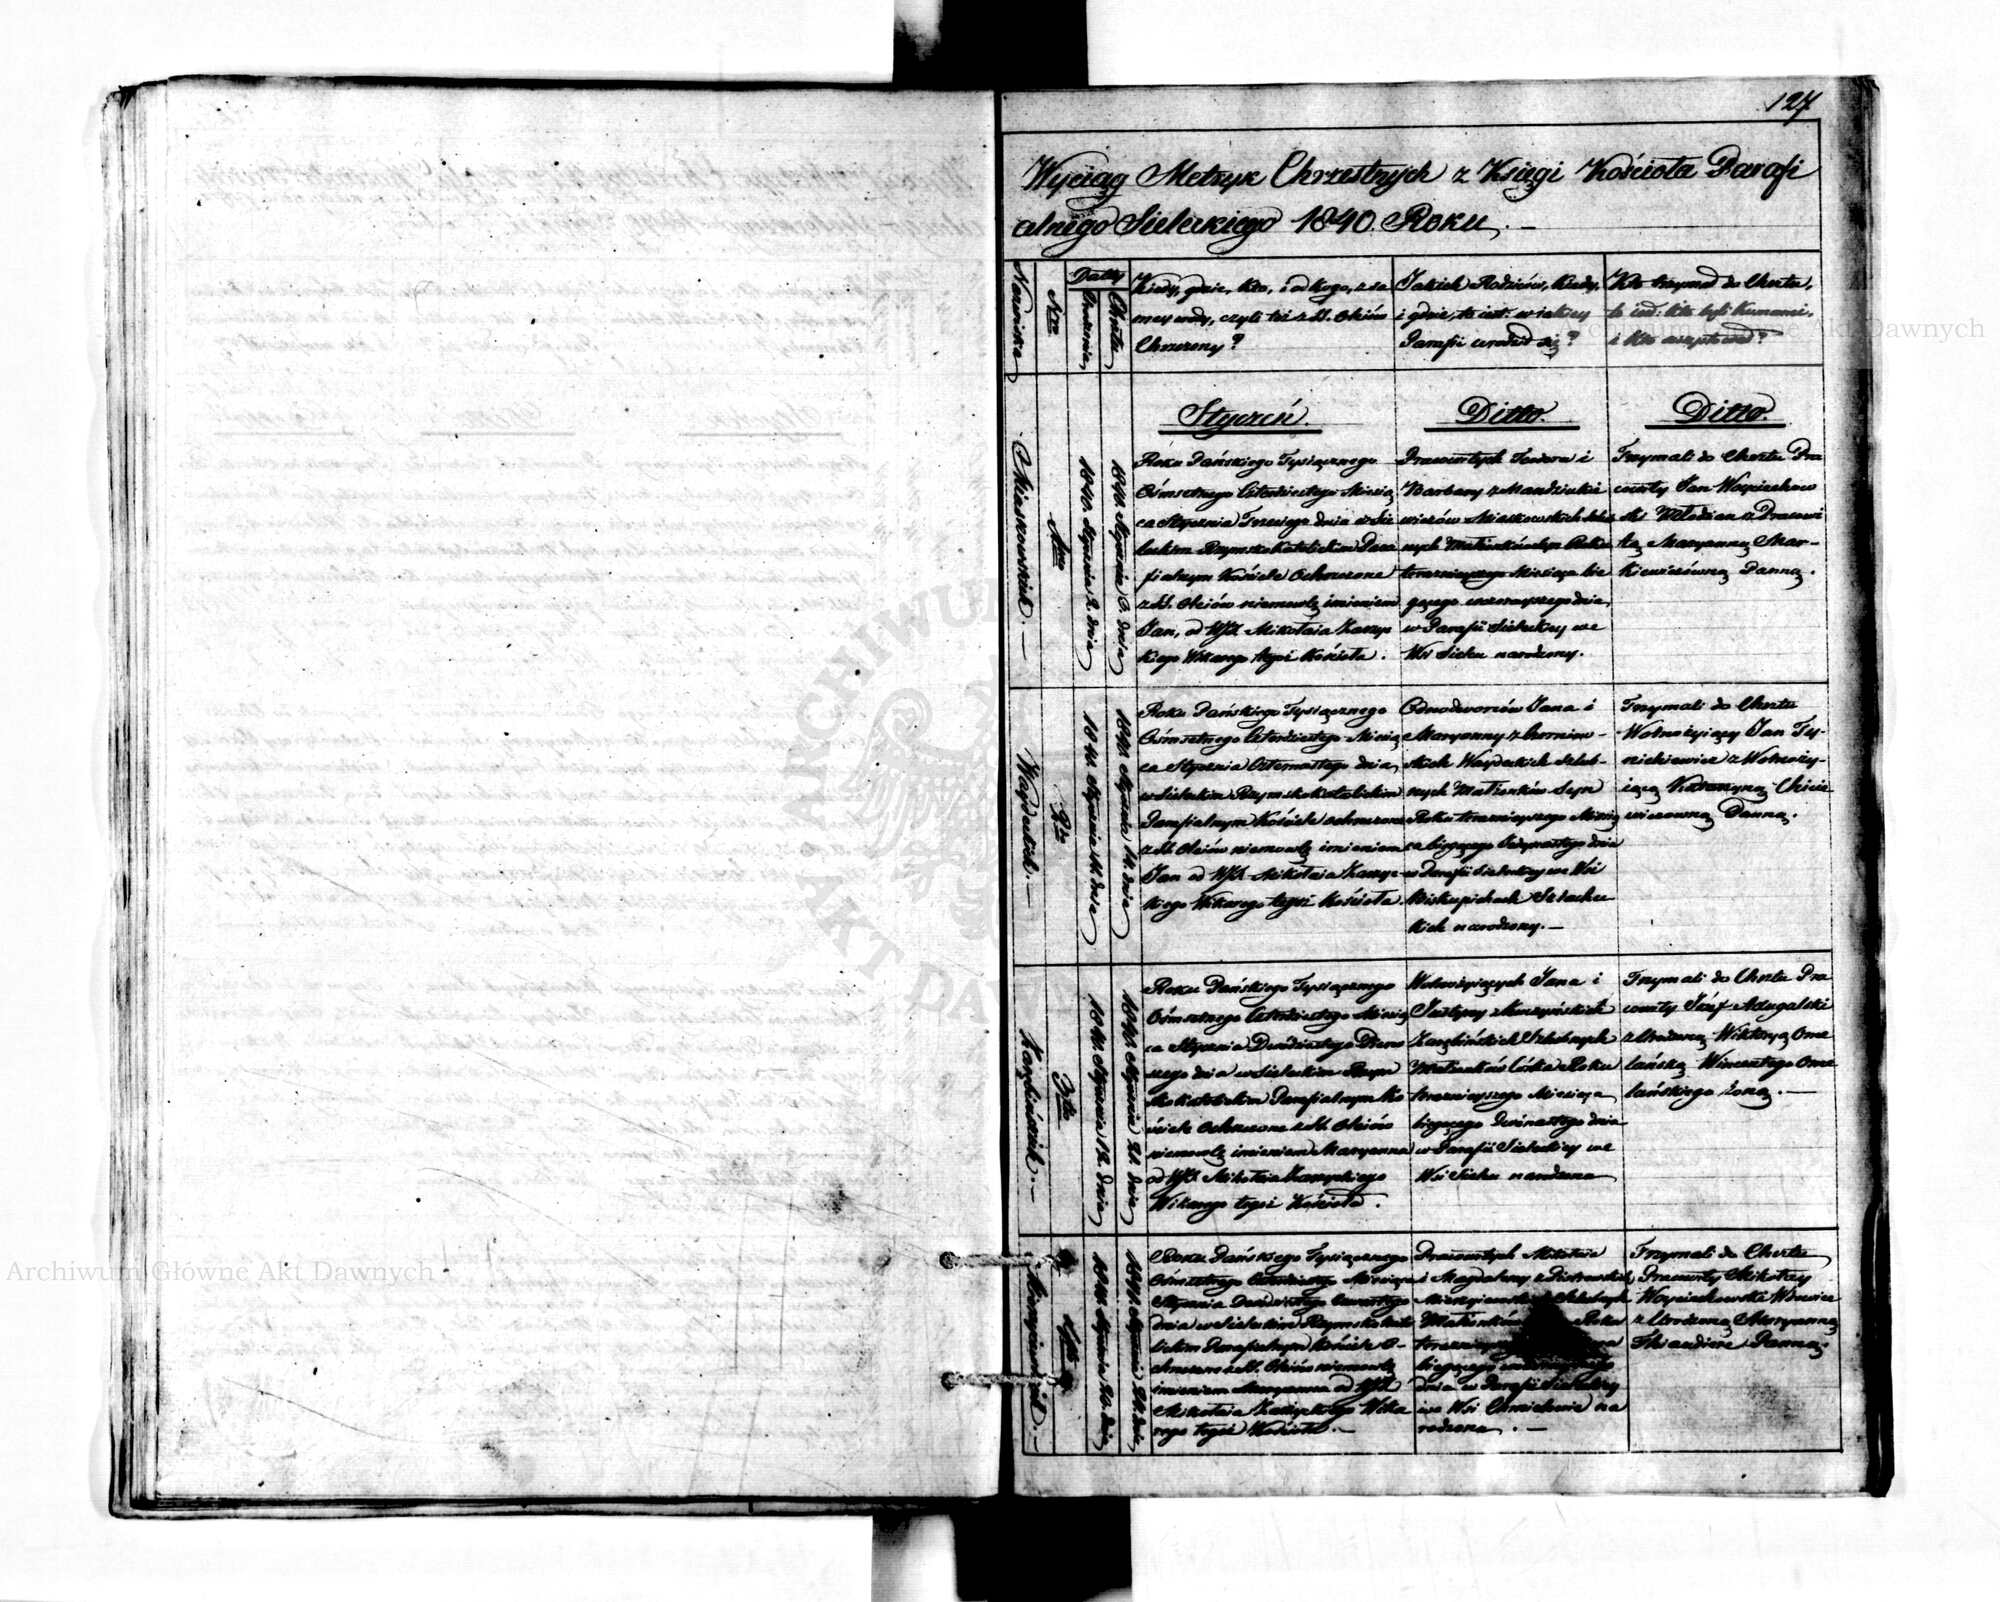 127
Wyciąg Metryk Chrzestnych z Księgi Kościoła Parafi
alnego Sieleckiego 1840. Roku. —
Nazwiska
Nro
Daty
Urodzenia
Chrztu
Kiedy, gdzie, kto, i od kogo, z sa
mey wody, czyli też z SS. Oleiów
Chrzczony?
Jakich Rodziców, kiedy,
i gdzie, to iest: w iakiey
Parafii urodził się?
Kto trzymał do Chrztu,
to iest: kto byli Kumowie,
i kto assystował?
Styczeń.
Ditto.
Ditto.
Miaskowskich. —
1szy
1840. Stycznia 2. dnia
1840. Stycznia 3. dnia
Roku Pańskiego Tysiącznego
Ośmsetnego Czterdziestego Miesią
ca Stycznia Trzeciego dnia w Sie
leckim Rzymskokatolickim Para
fialnym Kościele Ochrzczone
z SS. Oleiów niemowlę imieniem
Jan, od WJX. Mikołaia
kiego Wikarego tegoż Kościoła.
Pracowitych Teodora i
Barbary z Mandziukie
wiczów Miaskowskich
nych Małżonków syn Roku
teraznieyszego Miesiąca bie
gącego wczorayszego dnia,
w Parafii Sieleckiey we
Wsi Sielcu narodzony.
Trzymali do Chrztu Pra
cowity Jan Woyciechow
ski Młodzian z Pracowi
tą Maryanną Mar-
kiewiczówną Panną.
2gie
1840. Stycznia 11. dnia
1840. Stycznia 14. dnia
Roku Pańskiego Tysiącznego
Ośmsetnego Czterdziestego Miesią
ca Stycznia Czternastego dnia,
w Sieleckim Rzymskokatolickim
Parafialnym Kościele ochrzczone
z SS. Oleiów niemowlę imieniem
Jan od WJX. Mikołaia
kiego Wikarego tegoż Kościoła.
Odnodworców Jana i
Maryanny z
skich Szlub-
nych Małżonków Syn
Roku teraznieyszego Miesią
ca biegącego Jedynastego dnia
w Parafii Sieleckiey we Wsi
Biskupichach Szlachec
kich narodzony. —
Trzymali do Chrztu
Wolnożyiący Jan Ty-
niekiewicz z Wolnoży-
iącą Katarzyną
wiczówną Panną.
3cie
1840. Stycznia 12. dnia
1840. Stycznia 21. dnia
Roku Pańskiego Tysiącznego
Ośmsetnego Czterdziestego Miesią
ca Stycznia Dwódziestego Pierw
szego dnia w Sieleckim Rzym
skokatolickim Parafialnym Ko
ściele Ochrzczone z SS. Oleiów
niemowlę imieniem Maryanna
od WJX. Mikołaia
Wikarego tegoż Kościoła.
Wolnożyiących Jana i
Justyny z
Szlubnych
Małżonków córka Roku
teraznieyszego Miesiąca
biegącego Dwónastego dnia
w Parafii Sieleckiey we
Wsi Sielcu narodzona
Trzymali do Chrztu Pra
cowity Józef
z Urodzoną Wiktoryą Ome
lańską Wincentego Ome
lańskiego żoną. —
1840. Stycznia 24. dnia
Roku Pańskiego Tysiącznego
Ośmsetnego Czterdziestego Miesiąca
Stycznia Dwódziestego Czwartego
dnia w Sieleckim Rzymskokato
lickim Parafialnym Kościele O-
chrzczone z SS. Oleiów niemowlę
imieniem Maryanna od WJX.
Mikołaia Wika
rego tegoż Kościoła. —
Pracowitych Mikołaia
i Magdaleny z Piotrowskich
Szlubnych
Małżonków Roku
biegącego
dnia w Parafii Sieleckiey
we Wsi Chmielowie na
rodzona. —
Trzymali do Chrztu
Pracowity Mikołay
Woyciechowski
z Urodzoną Maryanną
Panną.
Archiwum Główne Akt Dawnych
Archiwum Główne Akt Dawnych